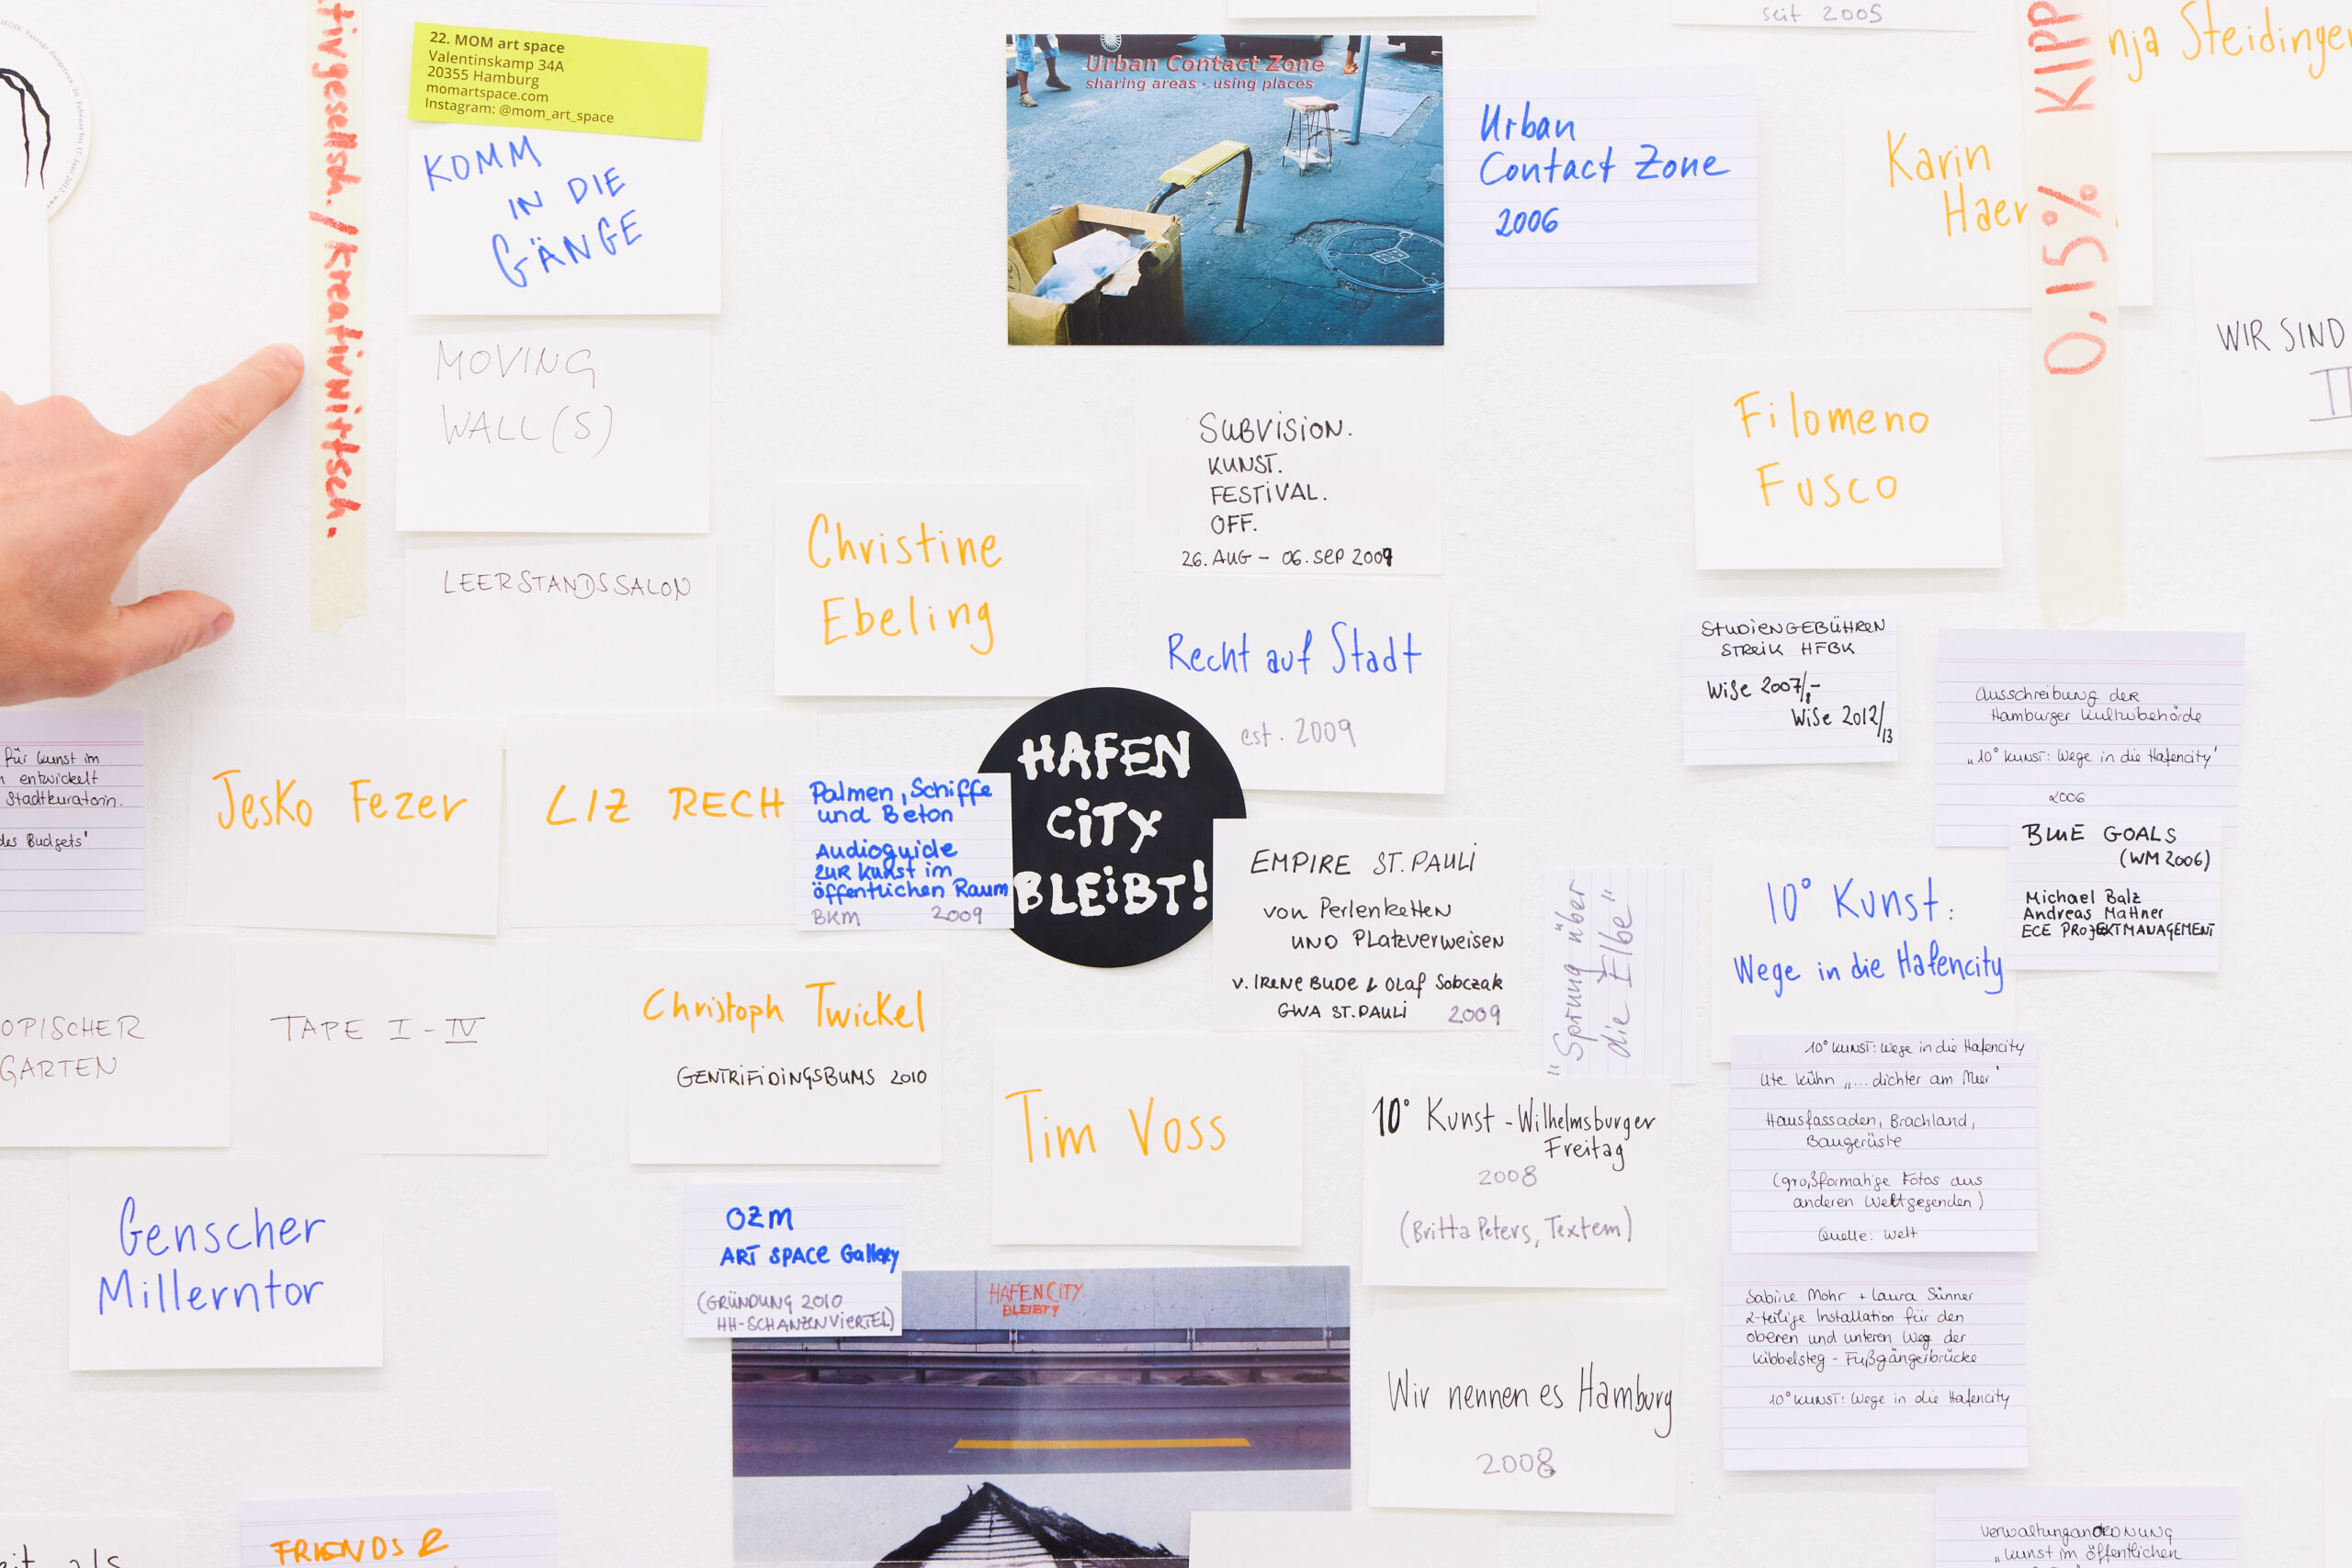 seit 2005
nja Steidinger
KIPP
0,15%
tivgesellsch./Kreativwirtsch.
22. MOM art space
Valentinskamp 34A
20355 Hamburg
momartspace.com
Instagram: @mom_art_space
KOMM
IN DIE
GÄNGE
MOVING
WALL(S)
LEERSTANDSSALON
Urban Contact Zone
sharing areas - using places
Urban
Contact Zone
2006
Karin
Haer
WIR SIND
II
SUBVISION.
KUNST.
FESTIVAL.
OFF.
26. AUG – 06. SEP 2009
Filomeno
Fusco
Christine
Ebeling
Recht auf Stadt
est. 2009
STUDIENGEBÜHREN
STREIK HFBK
WiSe 2007/8 –
WiSe 2012/13
Ausschreibung der
Hamburger Kulturbehörde
„10° Kunst: Wege in die Hafencity"
2006
BLUE GOALS
(WM 2006)
Michael Balz
Andreas Mattner
ECE PROJEKTMANAGEMENT
für Kunst im
entwickelt
Stadtkuratorin.
des Budgets"
Jesko Fezer
LIZ RECH
Palmen, Schiffe
und Beton
Audioguide
zur Kunst im
öffentlichen Raum
BKM 2009
HAFEN
CITY
BLEIBT!
EMPIRE ST. PAULI
von Perlenketten
UND Platzverweisen
v. IRENE BUDE & OLAF Sobczak
GWA ST. PAULI 2009
"Sprung über
die Elbe"
10° Kunst:
Wege in die Hafencity
OPISCHER
GARTEN
TAPE I - IV
Christoph Twickel
GENTRIFIDINGSBUMS 2010
Tim Voss
10° Kunst - Wilhelmsburger
Freitag
2008
(Britta Peters, Textem)
10° Kunst: Wege in die Hafencity
Ute Kühn „... dichter am Meer"
Hausfassaden, Brachland,
Baugerüste
(großformatige Fotos aus
anderen Weltgegenden)
Quelle: Welt
Genscher
Millerntor
OZM
ART SPACE Gallery
(GRÜNDUNG 2010
HH-SCHANZENVIERTEL)
HAFENCITY
BLEIBT!
Wir nennen es Hamburg
2008
Sabine Mohr + Laura Sünner
2-teilige Installation für den
oberen und unteren Weg der
Kibbelsteg - Fußgängerbrücke
10° Kunst: Wege in die Hafencity
FRIENDS &
Verwaltungsanordnung
„Kunst im öffentlichen